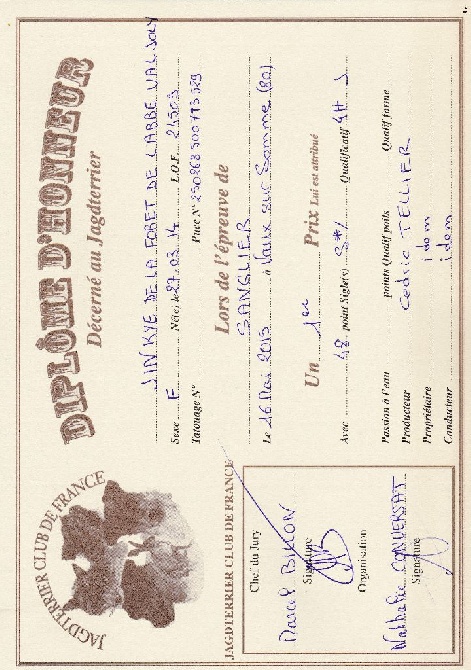 DIPLÔME D'HONNEUR
Décerné au Jagdterrier
JIN KYE DE LA FORET DE L'ABBE VAL JOLY
Sexe F Né(e) le 27.03.14 L.O.F. 21503
Tatouage N° Puce N° 250268500773529
Lors de l'épreuve de
SANGLIER
Le 16 Mai 2015 à Vaux sur Somme (80)
Un 1er Prix Lui est attribué
Avec 48 point Sigle(s) Qualificatif
Passion à l'eau points Qualif poils Qualif forme
Producteur Cédric TELLIER
Propriétaire idem
Conducteur idem
JAGDTERRIER CLUB DE FRANCE
JAGDTERRIER CLUB DE FRANCE
Chef du Jury
Marcel
Signature
Organisation
Nathalie
Signature